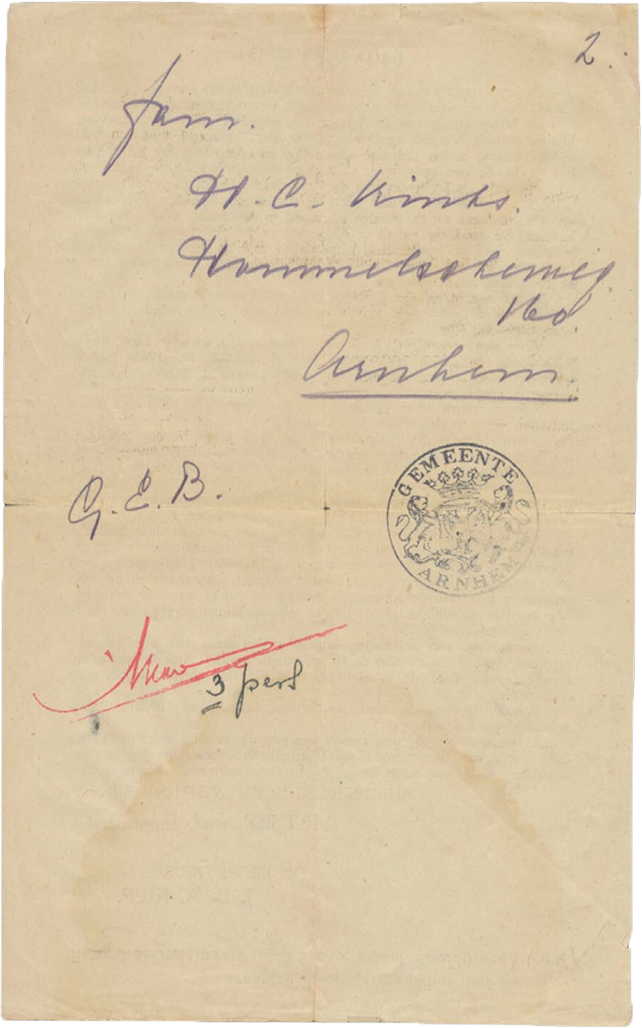 2.
Fam.
H. C. Kinks.
Hommelscheweg
160.
Arnhem.
G. E. B.
GEMEENTE
ARNHEM
3 pers